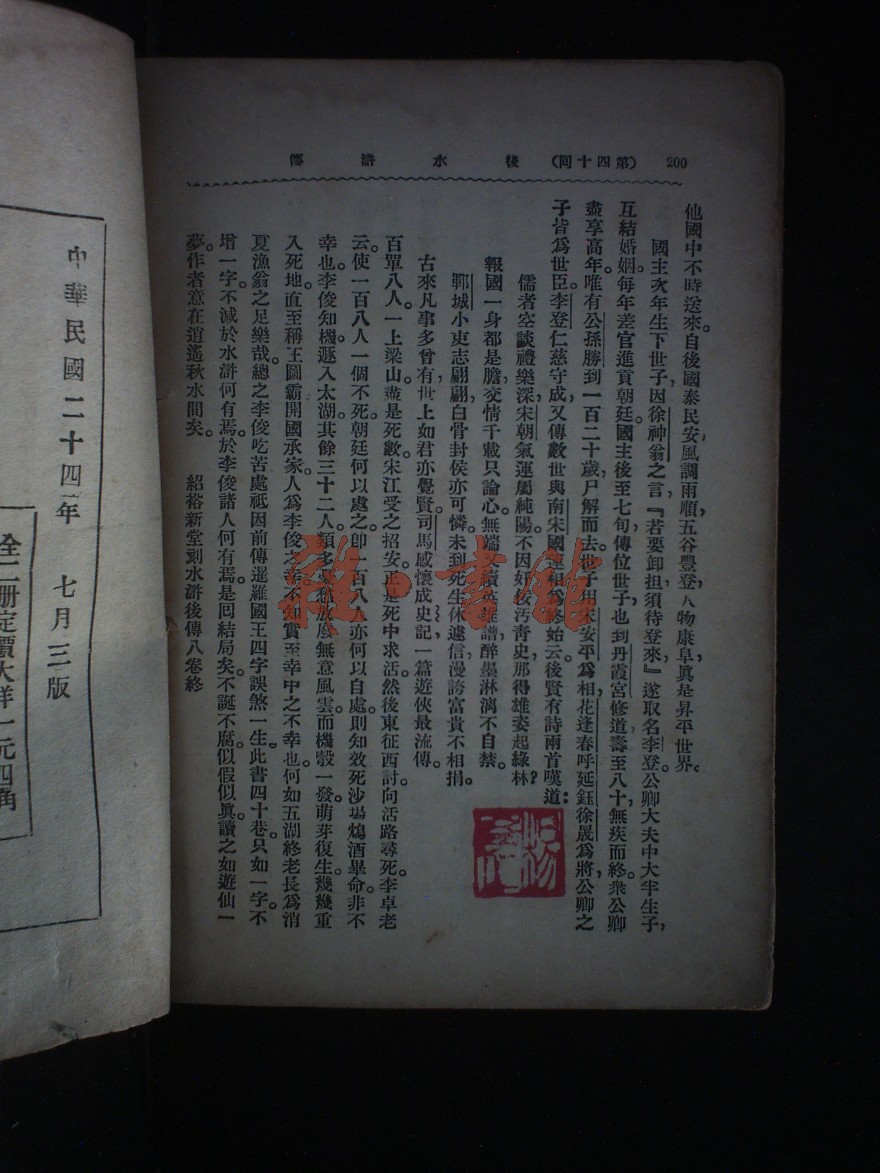 200 （第四十回） 後水滸傳
他國中不時送來。自後國泰民安，風調雨順，五谷豐登，人物康阜，眞是昇平世界。
國主次年生下世子，因徐神翁之言，『若要卸担，須待登來』遂取名李登。公卿大夫中大半生子，
互結婚姻。每年差官進貢朝廷。國主後至七旬，傳位世子，也到丹霞宮修道，壽至八十，無疾而終。衆公卿
盡享高年。唯有公孫勝到一百二十歲，尸解而去。世子用宋安平爲相，花逢春呼延鈺徐晟爲將，公卿之
子皆爲世臣。李登仁慈守成，又傳數世，與南宋國運相爲終始云。後賢有詩兩首嘆道：
儒者空談禮樂深，宋朝氣運屬純陽。不因奸佞汚靑史，那得雄姿起綠林？
報國一身都是膽，交情千載只論心。無端續英雄譜，醉墨淋漓不自禁。
鄆城小吏志翩翩，白骨封侯亦可憐。未到死生休遽信，漫誇富貴不相捐。
古來凡事多曾有，世上如君亦覺賢。司馬感懷成史記，一篇遊俠最流傳。
百單八人，一上梁山，盡是死數。宋江受之招安，正是死中求活。然後東征西討，向活路尋死。李卓老
云。使一百八人一個不死，朝廷何以處之。卽一百八人亦何以自處。則知效死沙場，鴆酒畢命，非不
幸也。李俊知機，遯入太湖。其餘三十二人，類多受積放廢，無意風雲。而機彀一發，萌芽復生。幾幾重
入死地，直至稱王圖霸，開國承家。人爲李俊之幸，不知實至幸中之不幸也。何如五湖終老，長爲消
夏漁翁之足樂哉。總之李俊吃苦處，祗因前傳暹羅國王四字，誤煞一生。此書四十卷，只如一字。不
增一字，不減於水滸何有焉。於李俊諸人何有焉。是回結局矣。不誕不腐，似假似眞，讀之如遊仙一
夢。作者意在逍遙秋水間矣。
紹裕新堂刻水滸後傳八卷終
中華民國二十四年 七月三版
全二册定價大洋一元四角